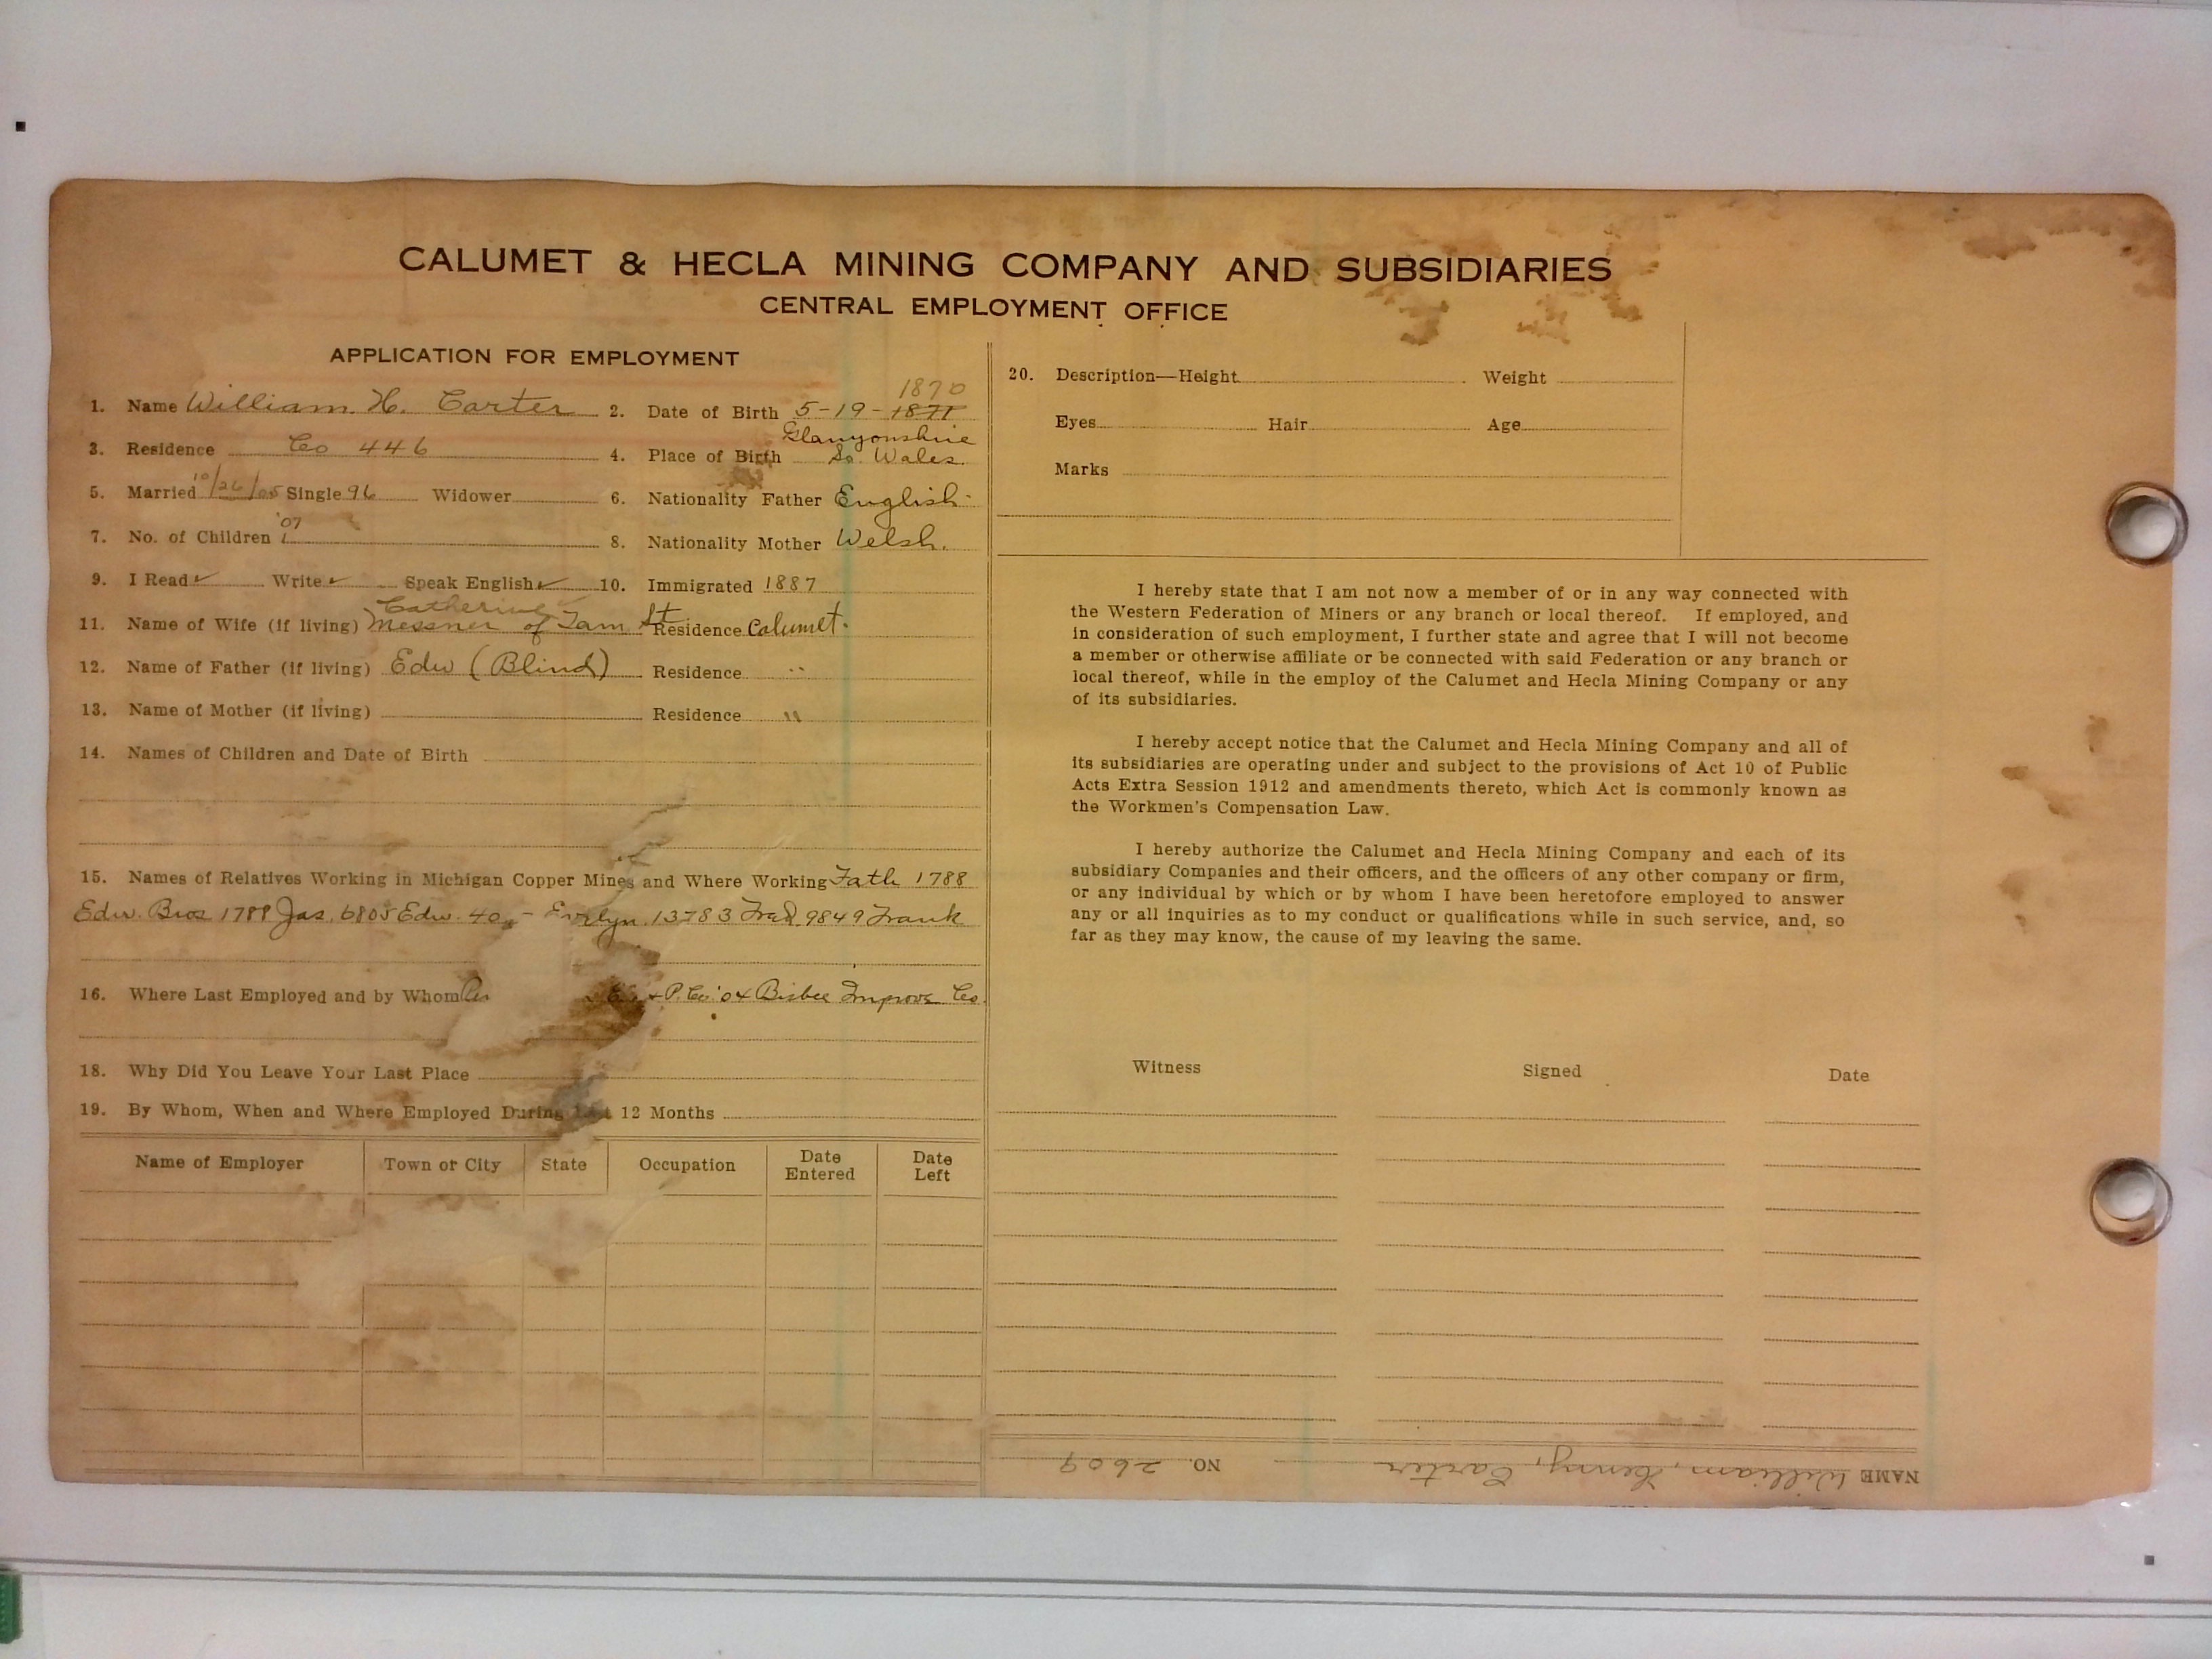 CALUMET & HECLA MINING COMPANY AND SUBSIDIARIES
CENTRAL EMPLOYMENT OFFICE
APPLICATION FOR EMPLOYMENT
1. Name William H. Carter 2. Date of Birth 5-19-1871 1870
3. Residence Co 446 4. Place of Birth Glanyonshire So. Wales
5. Married 10/26/05 Single 96 Widower 6. Nationality Father English
7. No. of Children 1 '07 8. Nationality Mother Welsh.
9. I Read ✓ Write ✓ Speak English ✓ 10. Immigrated 1887
Catherine
11. Name of Wife (if living) Messner of Tam St Residence Calumet.
12. Name of Father (if living) Edw (Blind) Residence "
13. Name of Mother (if living) Residence "
14. Names of Children and Date of Birth
15. Names of Relatives Working in Michigan Copper Mines and Where Working Fath 1788
Edw. Bros 1789 Jas. 6805 Edw. Evelyn 13783 Fred 9849 Frank
16. Where Last Employed and by Whom + P. Co. '04 Bisbee Improve Co.
18. Why Did You Leave Your Last Place
19. By Whom, When and Where Employed During Last 12 Months
Name of Employer Town or City State Occupation Date Entered Date Left
20. Description—Height Weight
Eyes Hair Age
Marks
I hereby state that I am not now a member of or in any way connected with
the Western Federation of Miners or any branch or local thereof. If employed, and
in consideration of such employment, I further state and agree that I will not become
a member or otherwise affiliate or be connected with said Federation or any branch or
local thereof, while in the employ of the Calumet and Hecla Mining Company or any
of its subsidiaries.
I hereby accept notice that the Calumet and Hecla Mining Company and all of
its subsidiaries are operating under and subject to the provisions of Act 10 of Public
Acts Extra Session 1912 and amendments thereto, which Act is commonly known as
the Workmen's Compensation Law.
I hereby authorize the Calumet and Hecla Mining Company and each of its
subsidiary Companies and their officers, and the officers of any other company or firm,
or any individual by which or by whom I have been heretofore employed to answer
any or all inquiries as to my conduct or qualifications while in such service, and, so
far as they may know, the cause of my leaving the same.
Witness Signed Date
NAME William, Henry, Carter NO. 2609